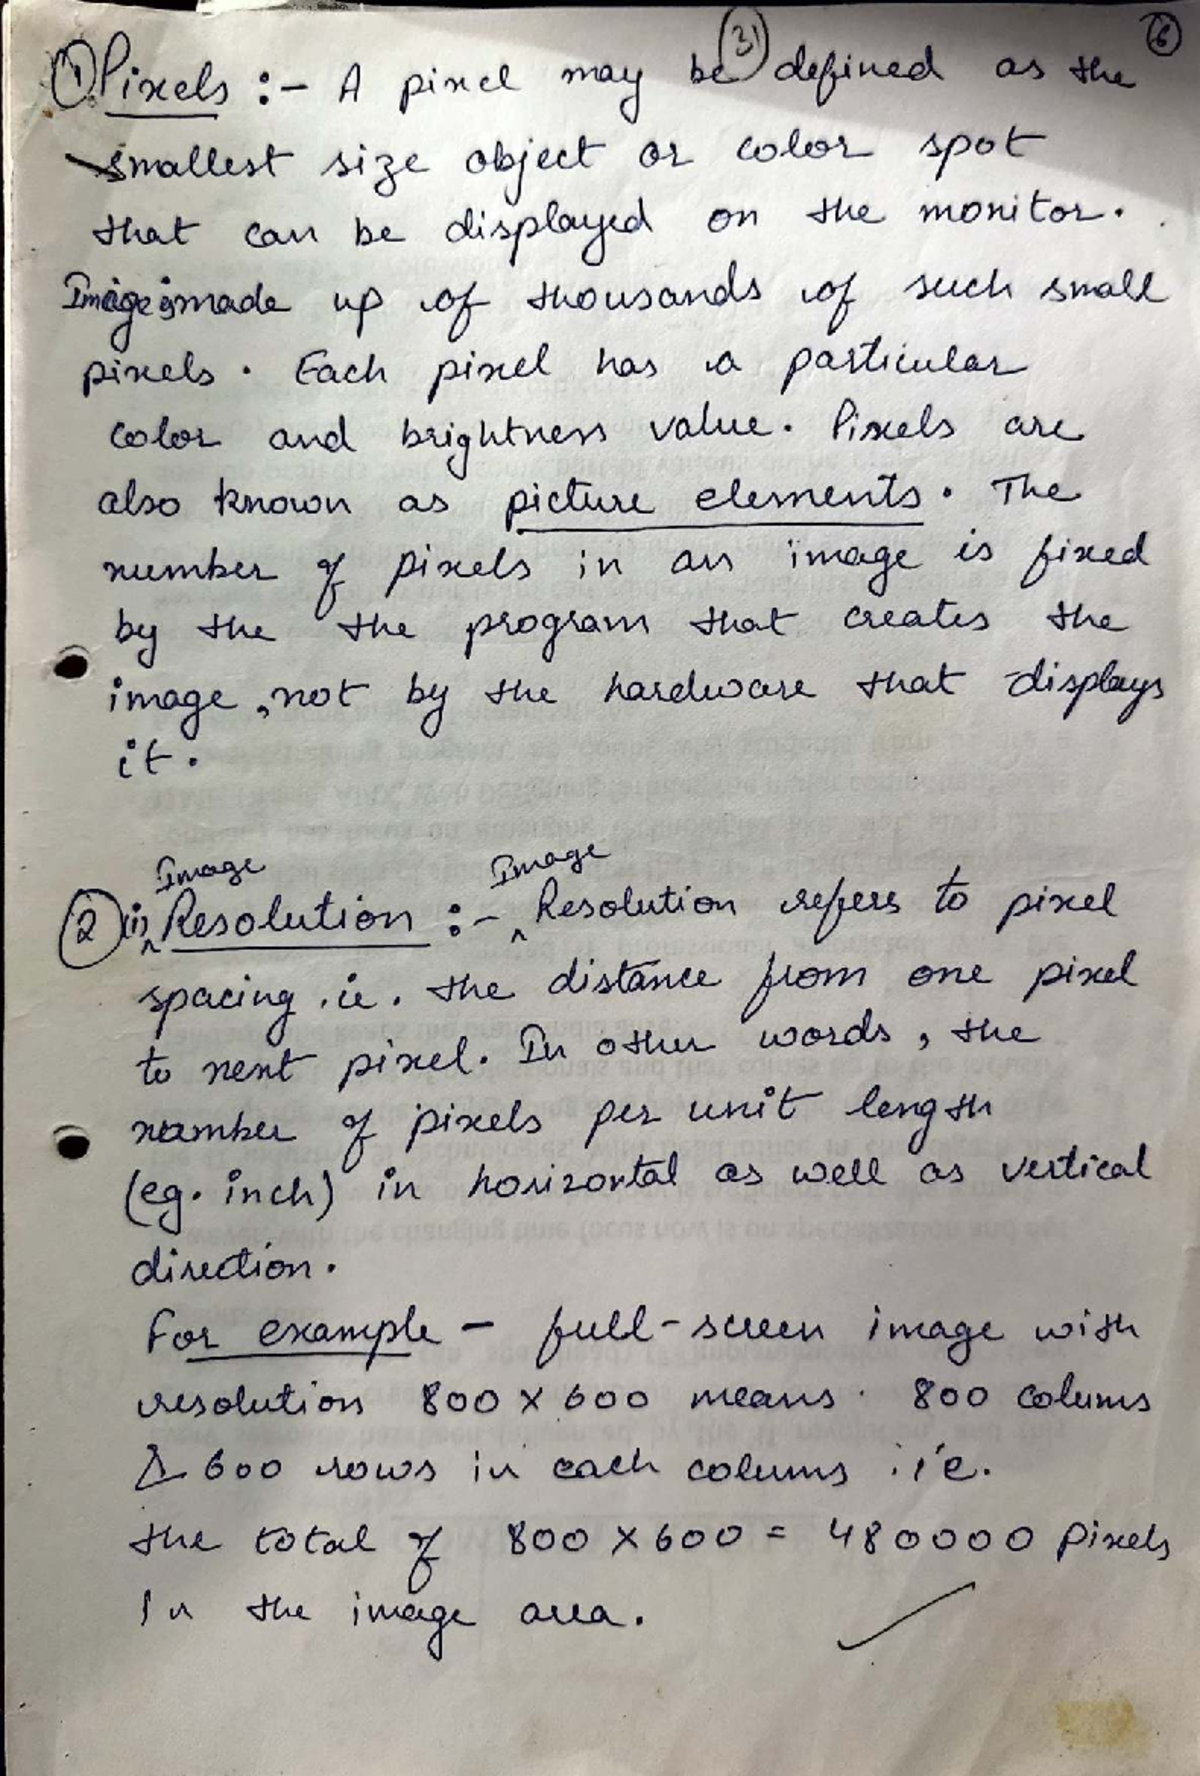 31
6
① Pixels :- A pixel may be defined as the
smallest size object or color spot
that can be displayed on the monitor.
Image is made up of thousands of such small
pixels. Each pixel has a particular
color and brightness value. Pixels are
also known as picture elements. The
number of pixels in an image is fixed
by the the program that creates the
image, not by the hardware that displays
it.
Image Image
② (i) Resolution :- Resolution refers to pixel
spacing i.e. the distance from one pixel
to next pixel. In other words, the
number of pixels per unit length
(eg. inch) in horizontal as well as vertical
direction.
For example - full-screen image with
resolution 800 X 600 means 800 colums
& 600 rows in each colums i.e.
the total of 800 X 600 = 480000 Pixels
In the image area.